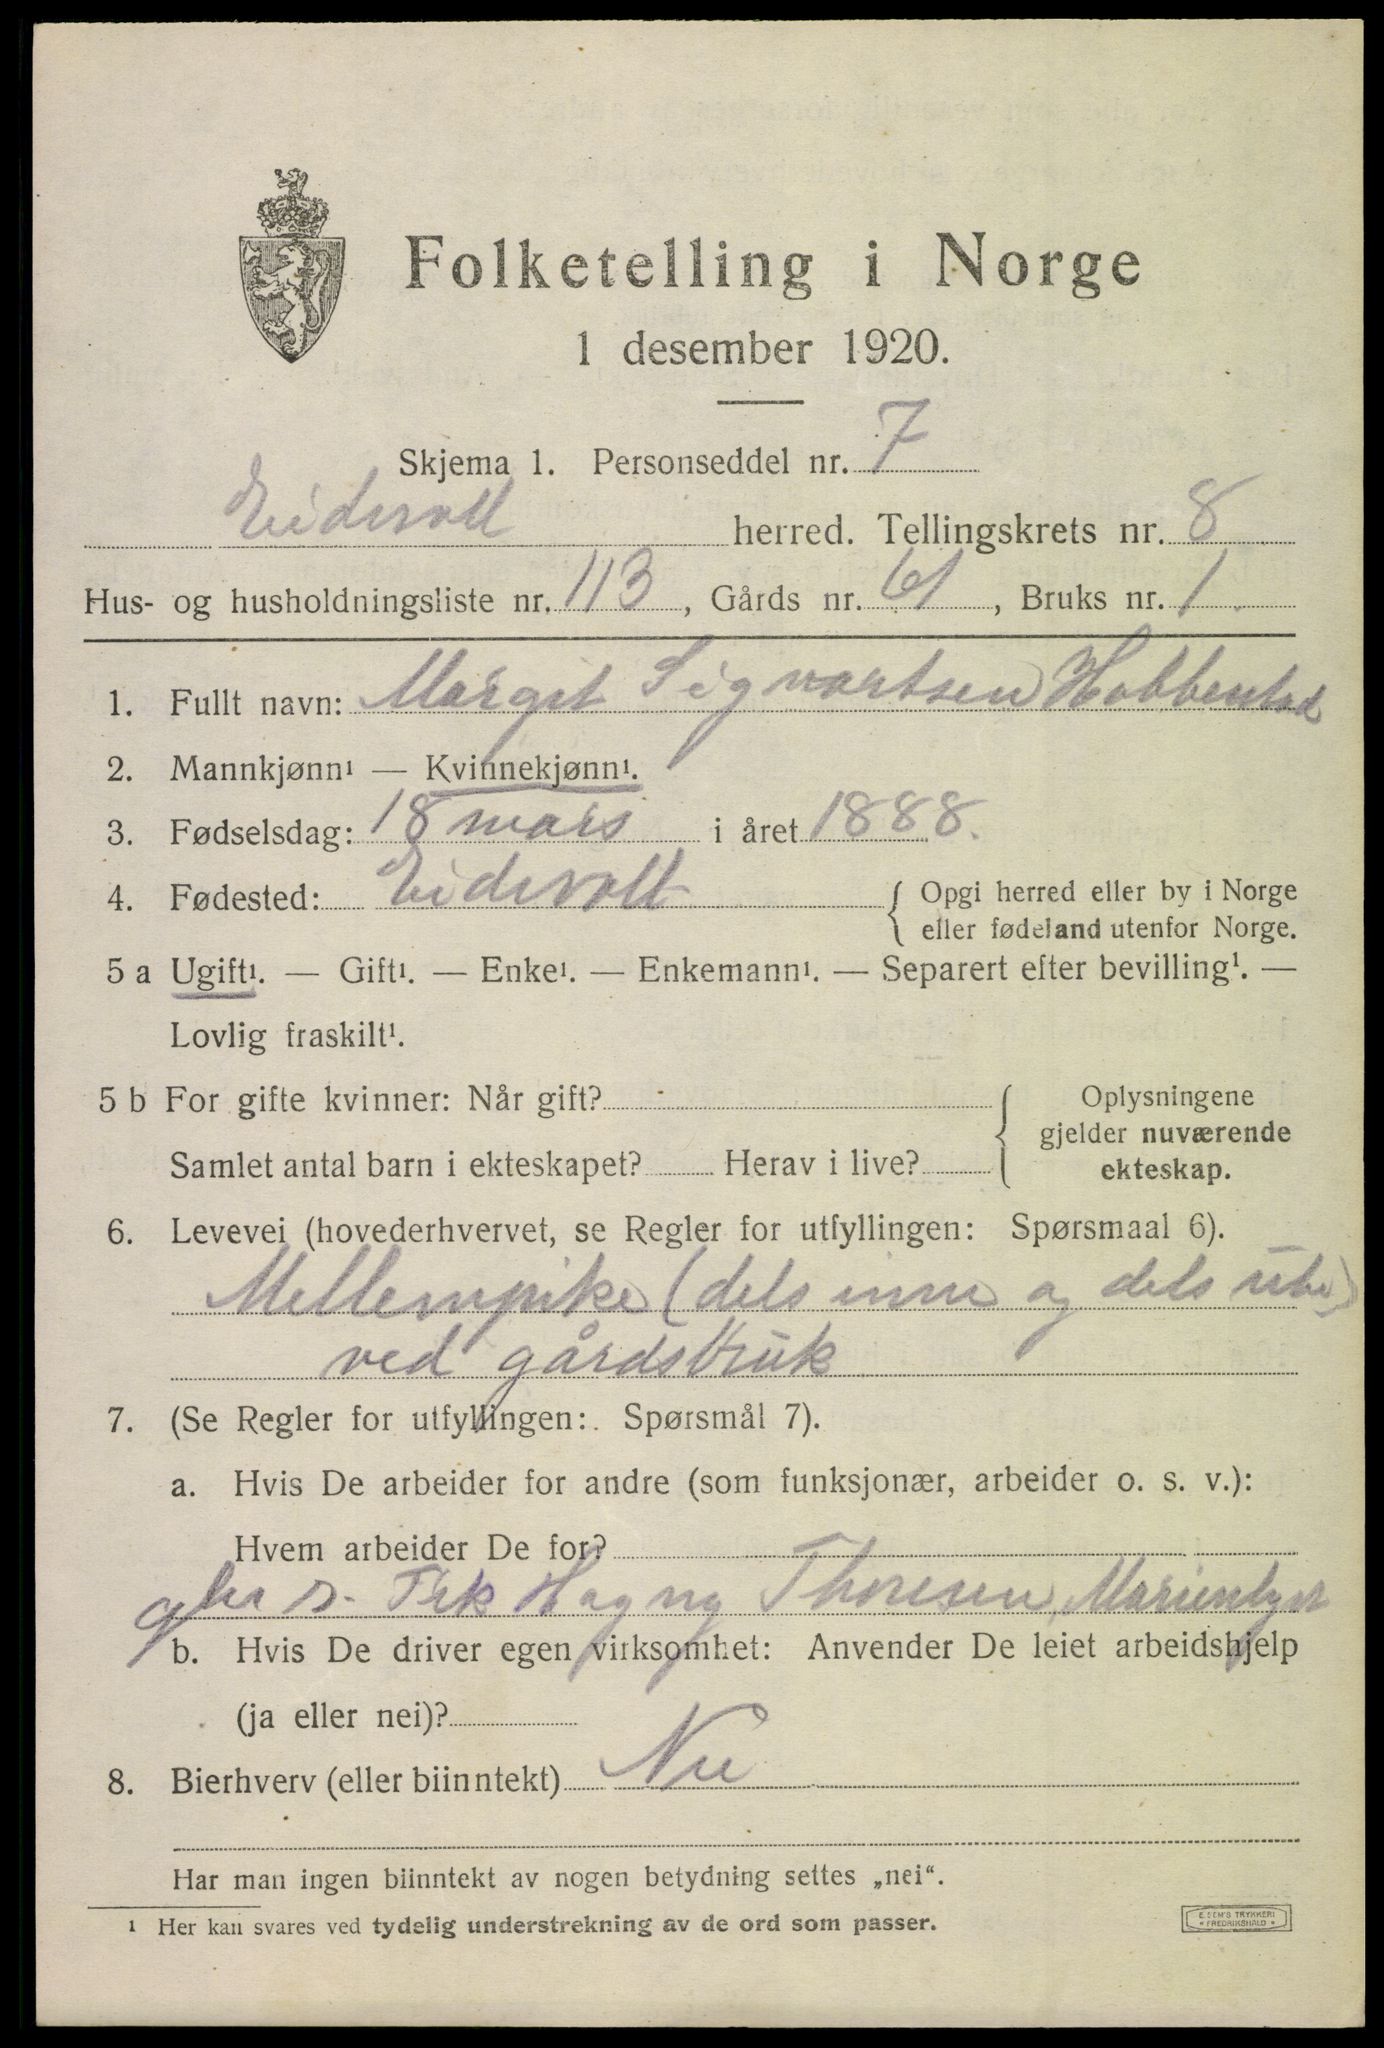 Folketelling i Norge
1 desember 1920.
Skjema 1. Personseddel nr. 7
Eidsvoll herred. Tellingskrets nr. 8
Hus- og husholdningsliste nr. 113, Gårds nr. 61, Bruks nr. 1.
1. Fullt navn: Margit Sigvartsen Habbenstad
2. Mannkjønn¹ — Kvinnekjønn¹.
3. Fødselsdag: 18 mars i året 1888.
4. Fødested: Eidsvoll { Opgi herred eller by i Norge
eller fødeland utenfor Norge.
5 a Ugift¹. — Gift¹. — Enke¹. — Enkemann¹. — Separert efter bevilling¹. —
Lovlig fraskilt¹.
5 b For gifte kvinner: Når gift? { Oplysningene
gjelder nuværende
Samlet antal barn i ekteskapet? Herav i live? ekteskap.
6. Levevei (hovederhvervet, se Regler for utfyllingen: Spørsmaal 6).
Mellempike (dels inne og dels ute)
ved gårdsbruk
7. (Se Regler for utfyllingen: Spørsmål 7).
a. Hvis De arbeider for andre (som funksjonær, arbeider o. s. v.):
Hvem arbeider De for?
Thoresen, Marienlyst
b. Hvis De driver egen virksomhet: Anvender De leiet arbeidshjelp
(ja eller nei)?
8. Bierhverv (eller biinntekt) Nei
Har man ingen biinntekt av nogen betydning settes „nei“.
¹ Her kan svares ved tydelig understrekning av de ord som passer.
E. SEM'S TRYKKERI
* FREDRIKSHALD *